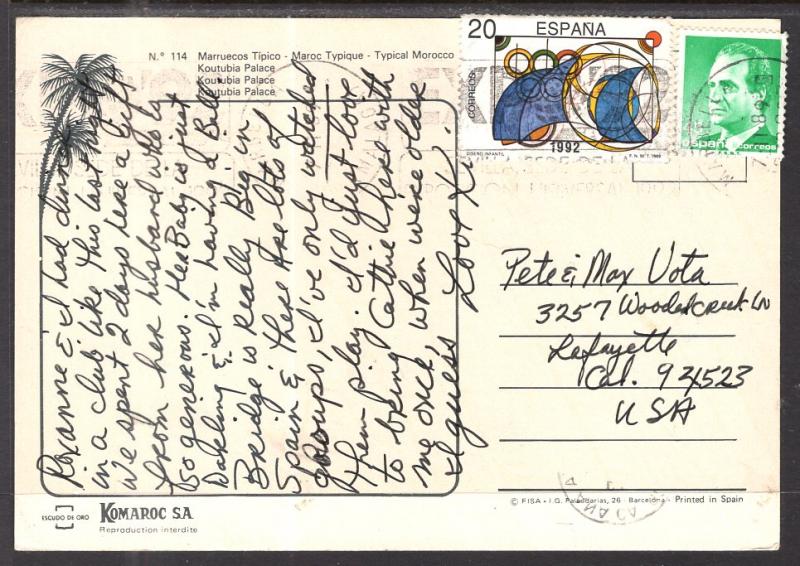 N.º 114 Marruecos Típico - Maroc Typique - Typical Morocco
Koutubia Palace
Koutubia Palace
Koutubia Palace
20 ESPAÑA
CORREOS
1992
DISEÑO INFANTIL
F.N.M.T. 1989
españa correos
Roxanne & I had dinner
in a club like this last night
We spent 2 days here a gift
from her husband who is
so generous. Her Baby is just
Darling & I'm having a Ball.
Bridge is Really Big in
Spain & there are lots of
groups, I've only watched
them play. I'd just love
to bring Cathie here with
me once, when we're older
I guess Love
Pete & Max Vota
3257 Woodedcreek Ln
Lafayette
Cal. 94523
USA
ESCUDO DE ORO KOMAROC S.A.
Reproduction interdite
© FISA - I.G. Palaudarias, 26 - Barcelona - Printed in Spain